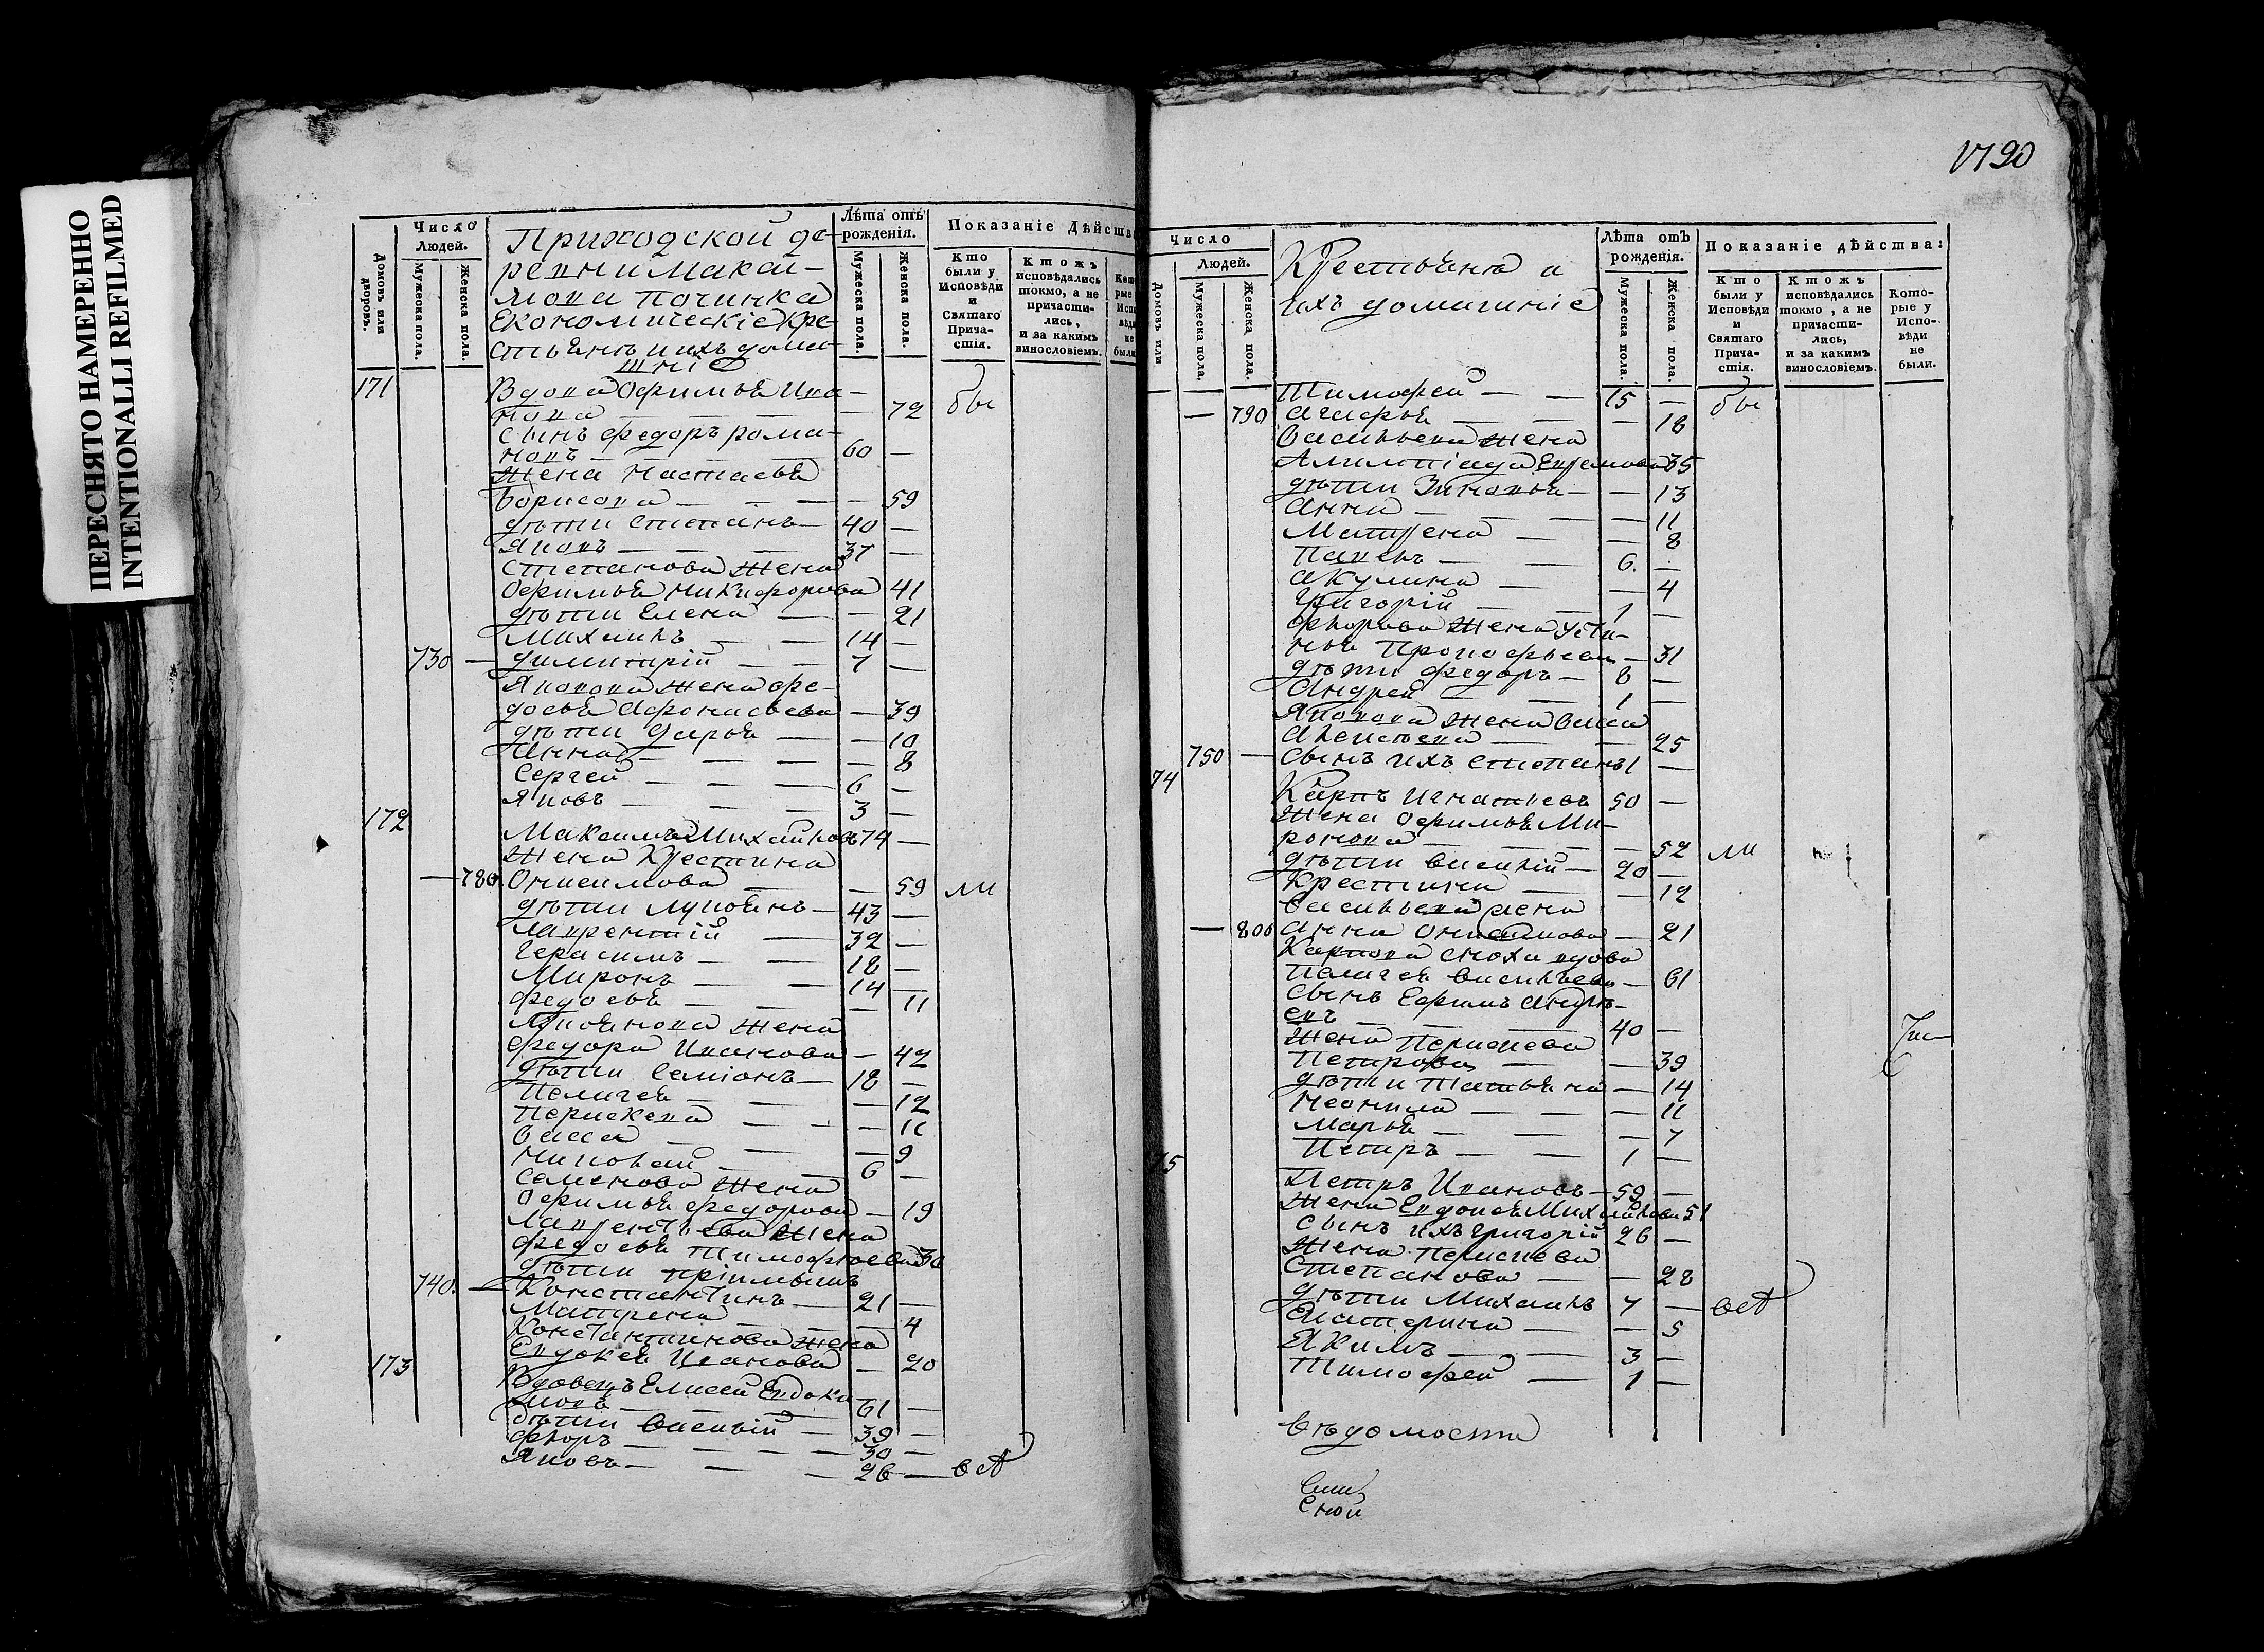 ПЕРЕСНЯТО НАМЕРЕННО
INTENTIONALLI REFILMED
Число
Людей.
Домовъ или дворовъ.
Мужеска пола.
Женска пола.
Приходской де-
ревни Макси-
мова Починка
Економическіе Кре-
стьянѣ и ихъ дома-
шніе
Лѣта отъ
рожденія.
Мужеска пола.
Женска пола.
Показаніе Дѣйств
Кто
были у
Исповѣди
и
Святаго
Прича-
стія.
Ктожъ
исповѣдались
токмо, а не
причасти-
лись,
и за какимъ
винословіемъ.
171 Вдова Офимья Ива-
нова — — — 72 бы
сынъ Федоръ Рома-
новъ — 60 —
Жена Настасья
Борисова — — — 59
дѣти Степанъ — 40 —
Яковъ — — — 37 —
Степанова Жена
Офимья Никифорова 41
дѣти Елена — — 21
Михаилъ — — 14 —
730 — Димитрій — — 7 —
Яковова Жена Фе-
досья Афонасьева — 39
дѣти Дарья — — 10
Анна — — — — 8
Сергей — — — 6 —
Яковъ — — — 3 —
172 Максимъ Михайловъ 74 —
Жена Крестина
— 780. Онисимова — — 59 ли
дѣти Лукоянъ — 43 —
Лаврентій — 32 —
Герасимъ — — 18 —
Миронъ — — 14 —
Федосья — — — 11
Лукоянова Жена
Федора Иванова — 42
дѣти Семіонъ — 18 —
Пелагея — — — 12
Перасковя — — — 11
Васса — — — 9
Николай — — 6 —
Семенова Жена
Офимья Федорова — 19
Лаврентьева Жена
Федосья Тимофѣева 30
дѣти пріимышъ
740. — Константинъ — 21 —
Матрена — — — 4
Константинова Жена
Евдокея Иванова — 20
173 Вдовецъ Елисей Евдоки
мовъ — — — 61 —
дѣти Василій — 39 —
Флоръ — — — 30 —
Яковъ — — — 26 — всѣ
1790
Число
Людей.
Домовъ или
Мужеска пола.
Женска пола.
Крестьянѣ и
ихъ домашніе
Лѣта отъ
рожденія.
Мужеска пола.
Женска пола.
Показаніе дѣйства:
Кто
были у
Исповѣди
и
Святаго
Прича-
стія.
Ктожъ
исповѣдались
токмо, а не
причасти-
лись,
и за какимъ
винословіемъ.
Кото-
рые у
Испо-
вѣди
не
были.
Тимофей — — 15 — бы
— 790 Агафья — — — 18
Васильева Жена
дѣти Зиновья — — 13
Анна — — — — 11
Матрена — — 8
Павелъ — — 6. —
Акулина — — 4
Григорій — — 1 —
Флорова Жена Усти-
нья Прокофьева — 31
дѣти Федоръ — 8 —
Андрей — — 1 —
Яковова Жена Васса
Алексѣева — — 25
750 — сынъ ихъ Степанъ 1 —
74 Карпъ Игнатьевъ 50 —
Жена Офимья Ми-
ронова — — — 52 ли
дѣти Василій — 20 —
Крестина — — 12
Васильева Жена
— 800 Анна Онисимова — 21
Карпова сноха вдова
Пелагея Васильева — 61
сынъ Ефимъ Андрѣ-
евъ — — — 40 —
Жена Перасковя
Петрова — — 39
дѣти Татьяна — 14
Неонила — — — 11
Марья — — — 7
Петръ — — 1 —
Петръ Ивановъ — 59 —
Жена Евдокея Михайлова 51
сынъ ихъ Григорій 26 —
Жена Перасковя
Степанова — — 28
дѣти Михаилъ 7 — всѣ
Екатерина — — 5
Якимъ — — 3 —
Тимофей — 1 —
Вѣдомости